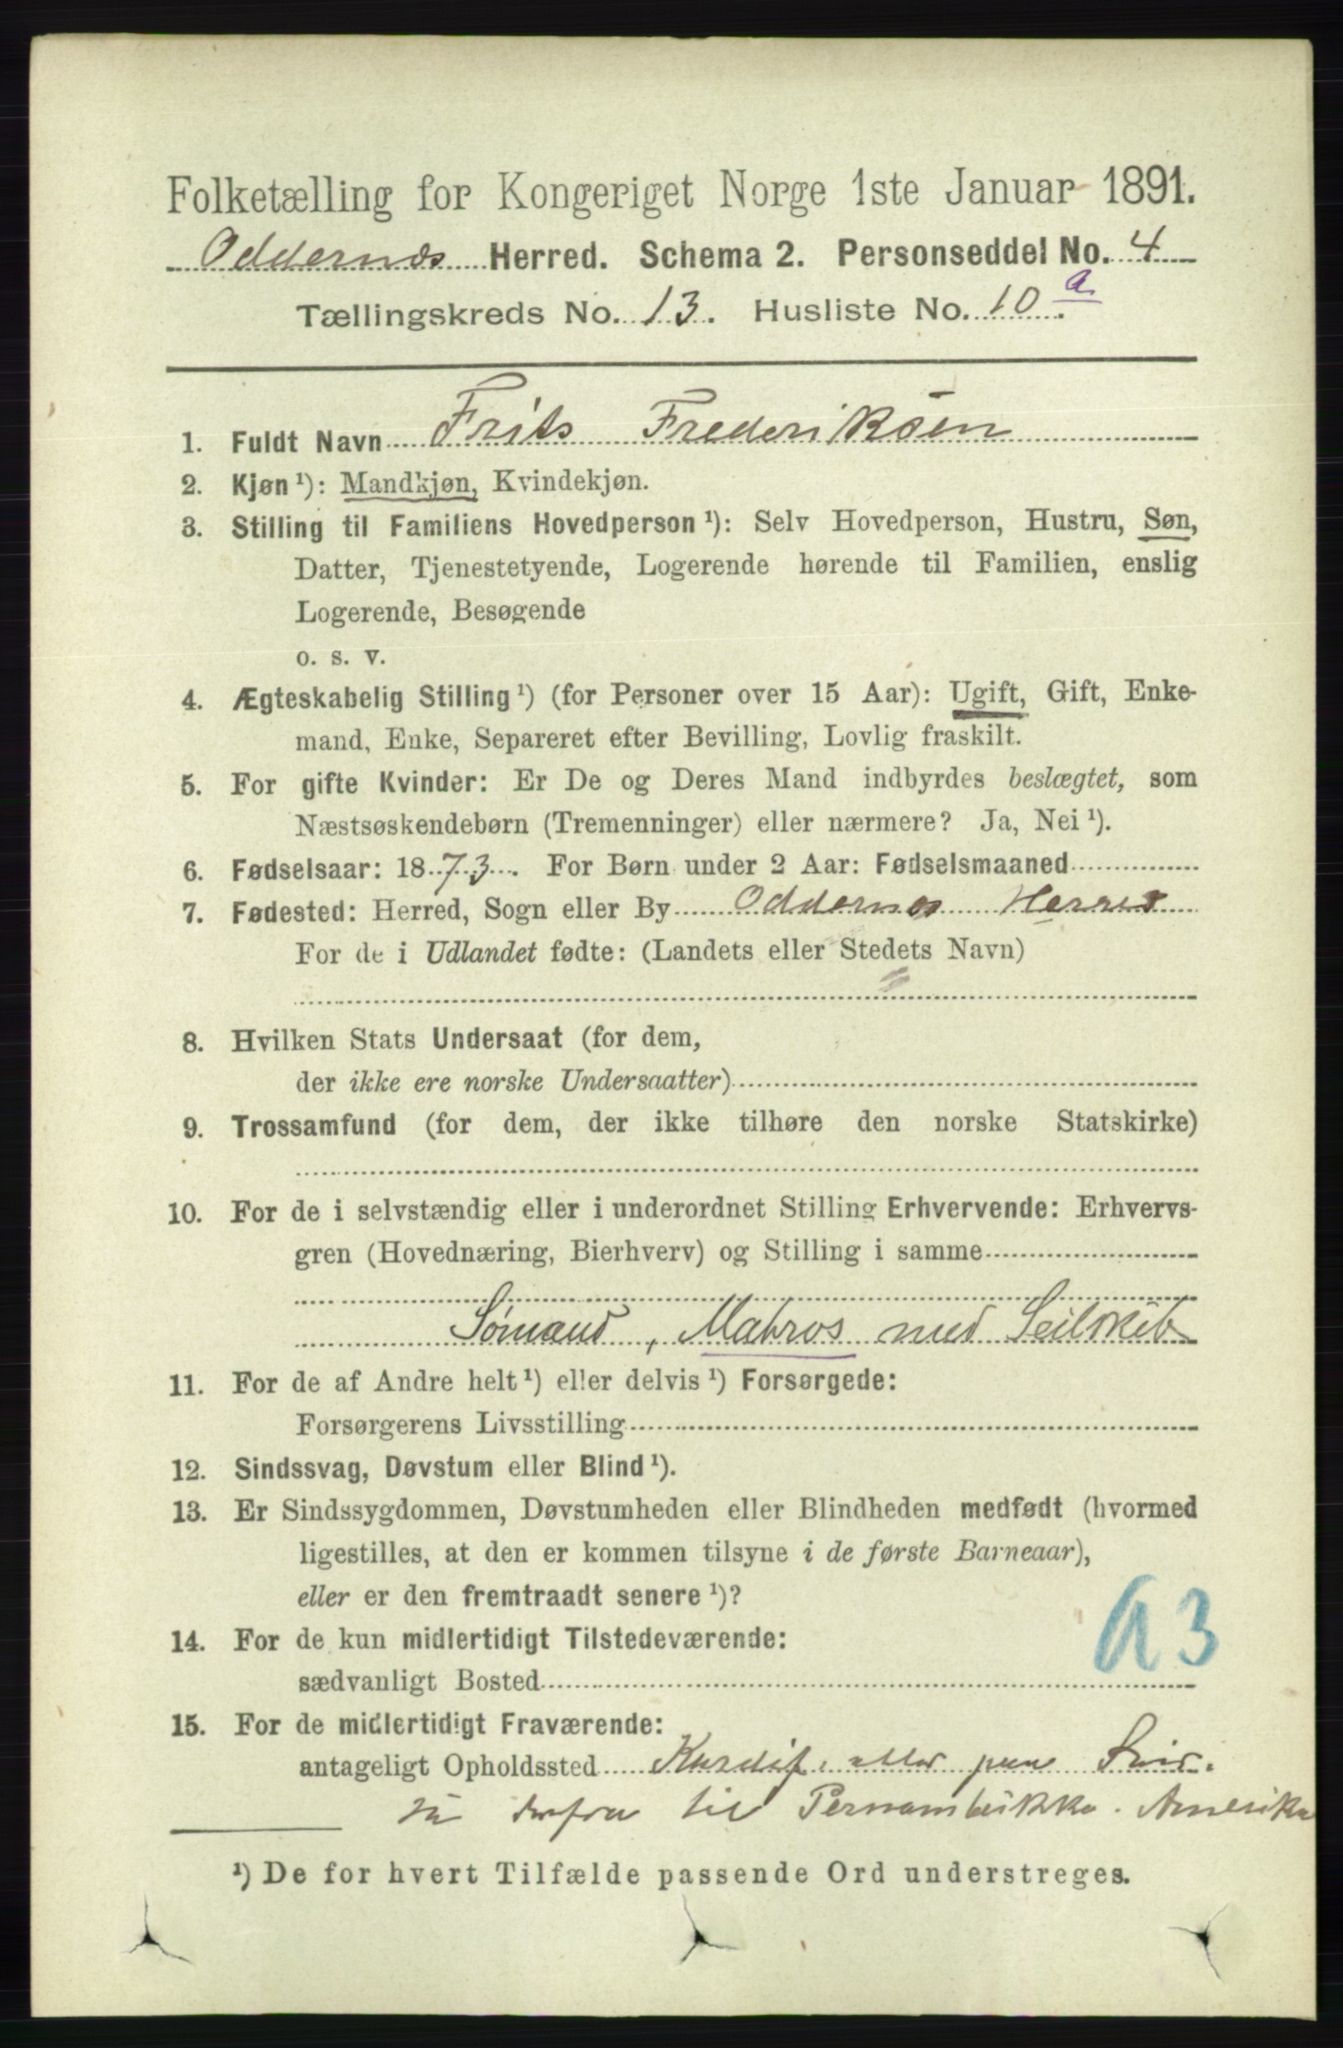 Folketælling for Kongeriget Norge 1ste Januar 1891.
Oddernes Herred. Schema 2. Personseddel No. 4
Tællingskreds No. 13. Husliste No. 10 a.
1. Fuldt Navn Frits Frederiksen
2. Kjøn ¹): Mandkjøn, Kvindekjøn.
3. Stilling til Familiens Hovedperson ¹): Selv Hovedperson, Hustru, Søn,
Datter, Tjenestetyende, Logerende hørende til Familien, enslig
Logerende, Besøgende
o. s. v.
4. Ægteskabelig Stilling ¹) (for Personer over 15 Aar): Ugift, Gift, Enke-
mand, Enke, Separeret efter Bevilling, Lovlig fraskilt.
5. For gifte Kvinder: Er De og Deres Mand indbyrdes beslægtet, som
Næstsøskendebørn (Tremenninger) eller nærmere? Ja, Nei ¹).
6. Fødselsaar: 1873. For Børn under 2 Aar: Fødselsmaaned
7. Fødested: Herred, Sogn eller By Oddernes Herred
For de i Udlandet fødte: (Landets eller Stedets Navn)
8. Hvilken Stats Undersaat (for dem,
der ikke ere norske Undersaatter)
9. Trossamfund (for dem, der ikke tilhøre den norske Statskirke)
10. For de i selvstændig eller i underordnet Stilling Erhvervende: Erhvervs-
gren (Hovednæring, Bierhverv) og Stilling i samme
Sømand, Matros med Seilskib
11. For de af Andre helt ¹) eller delvis ¹) Forsørgede:
Forsørgerens Livsstilling
12. Sindssvag, Døvstum eller Blind ¹).
13. Er Sindssygdommen, Døvstumheden eller Blindheden medfødt (hvormed
ligestilles, at den er kommen tilsyne i de første Barneaar),
eller er den fremtraadt senere ¹)?
A3
14. For de kun midlertidigt Tilstedeværende:
sædvanligt Bosted
15. For de midlertidigt Fraværende:
antageligt Opholdssted Kardif, eller paa
derfra til Pernambukko. Amerika
¹) De for hvert Tilfælde passende Ord understreges.